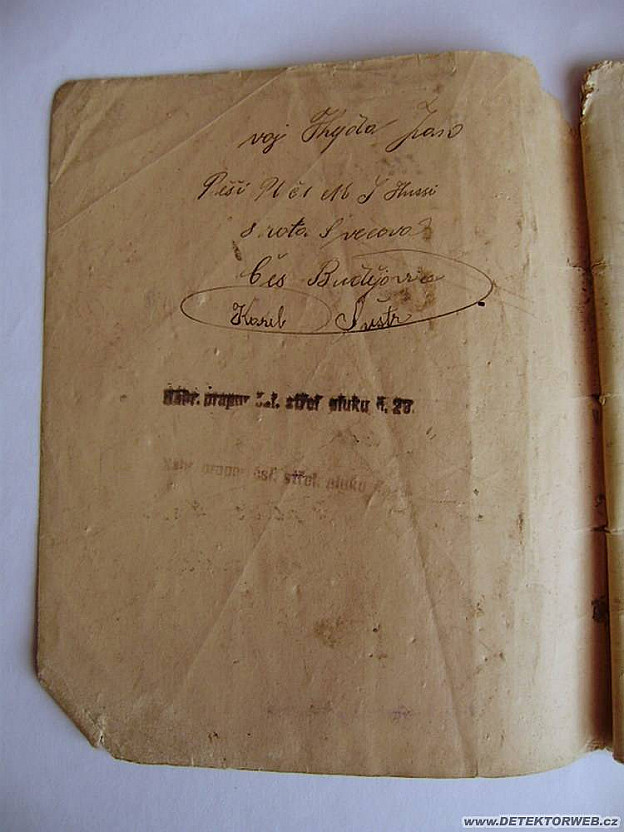 voj
Pěší Pl čs M J Hussi
s rota
Čes Budějovice
Karel Šustr
Náhr. prapor čsl. střel. pluku č. 28.
Náhr. prapor čsl. střel. pluku
www.DETEKTORWEB.cz